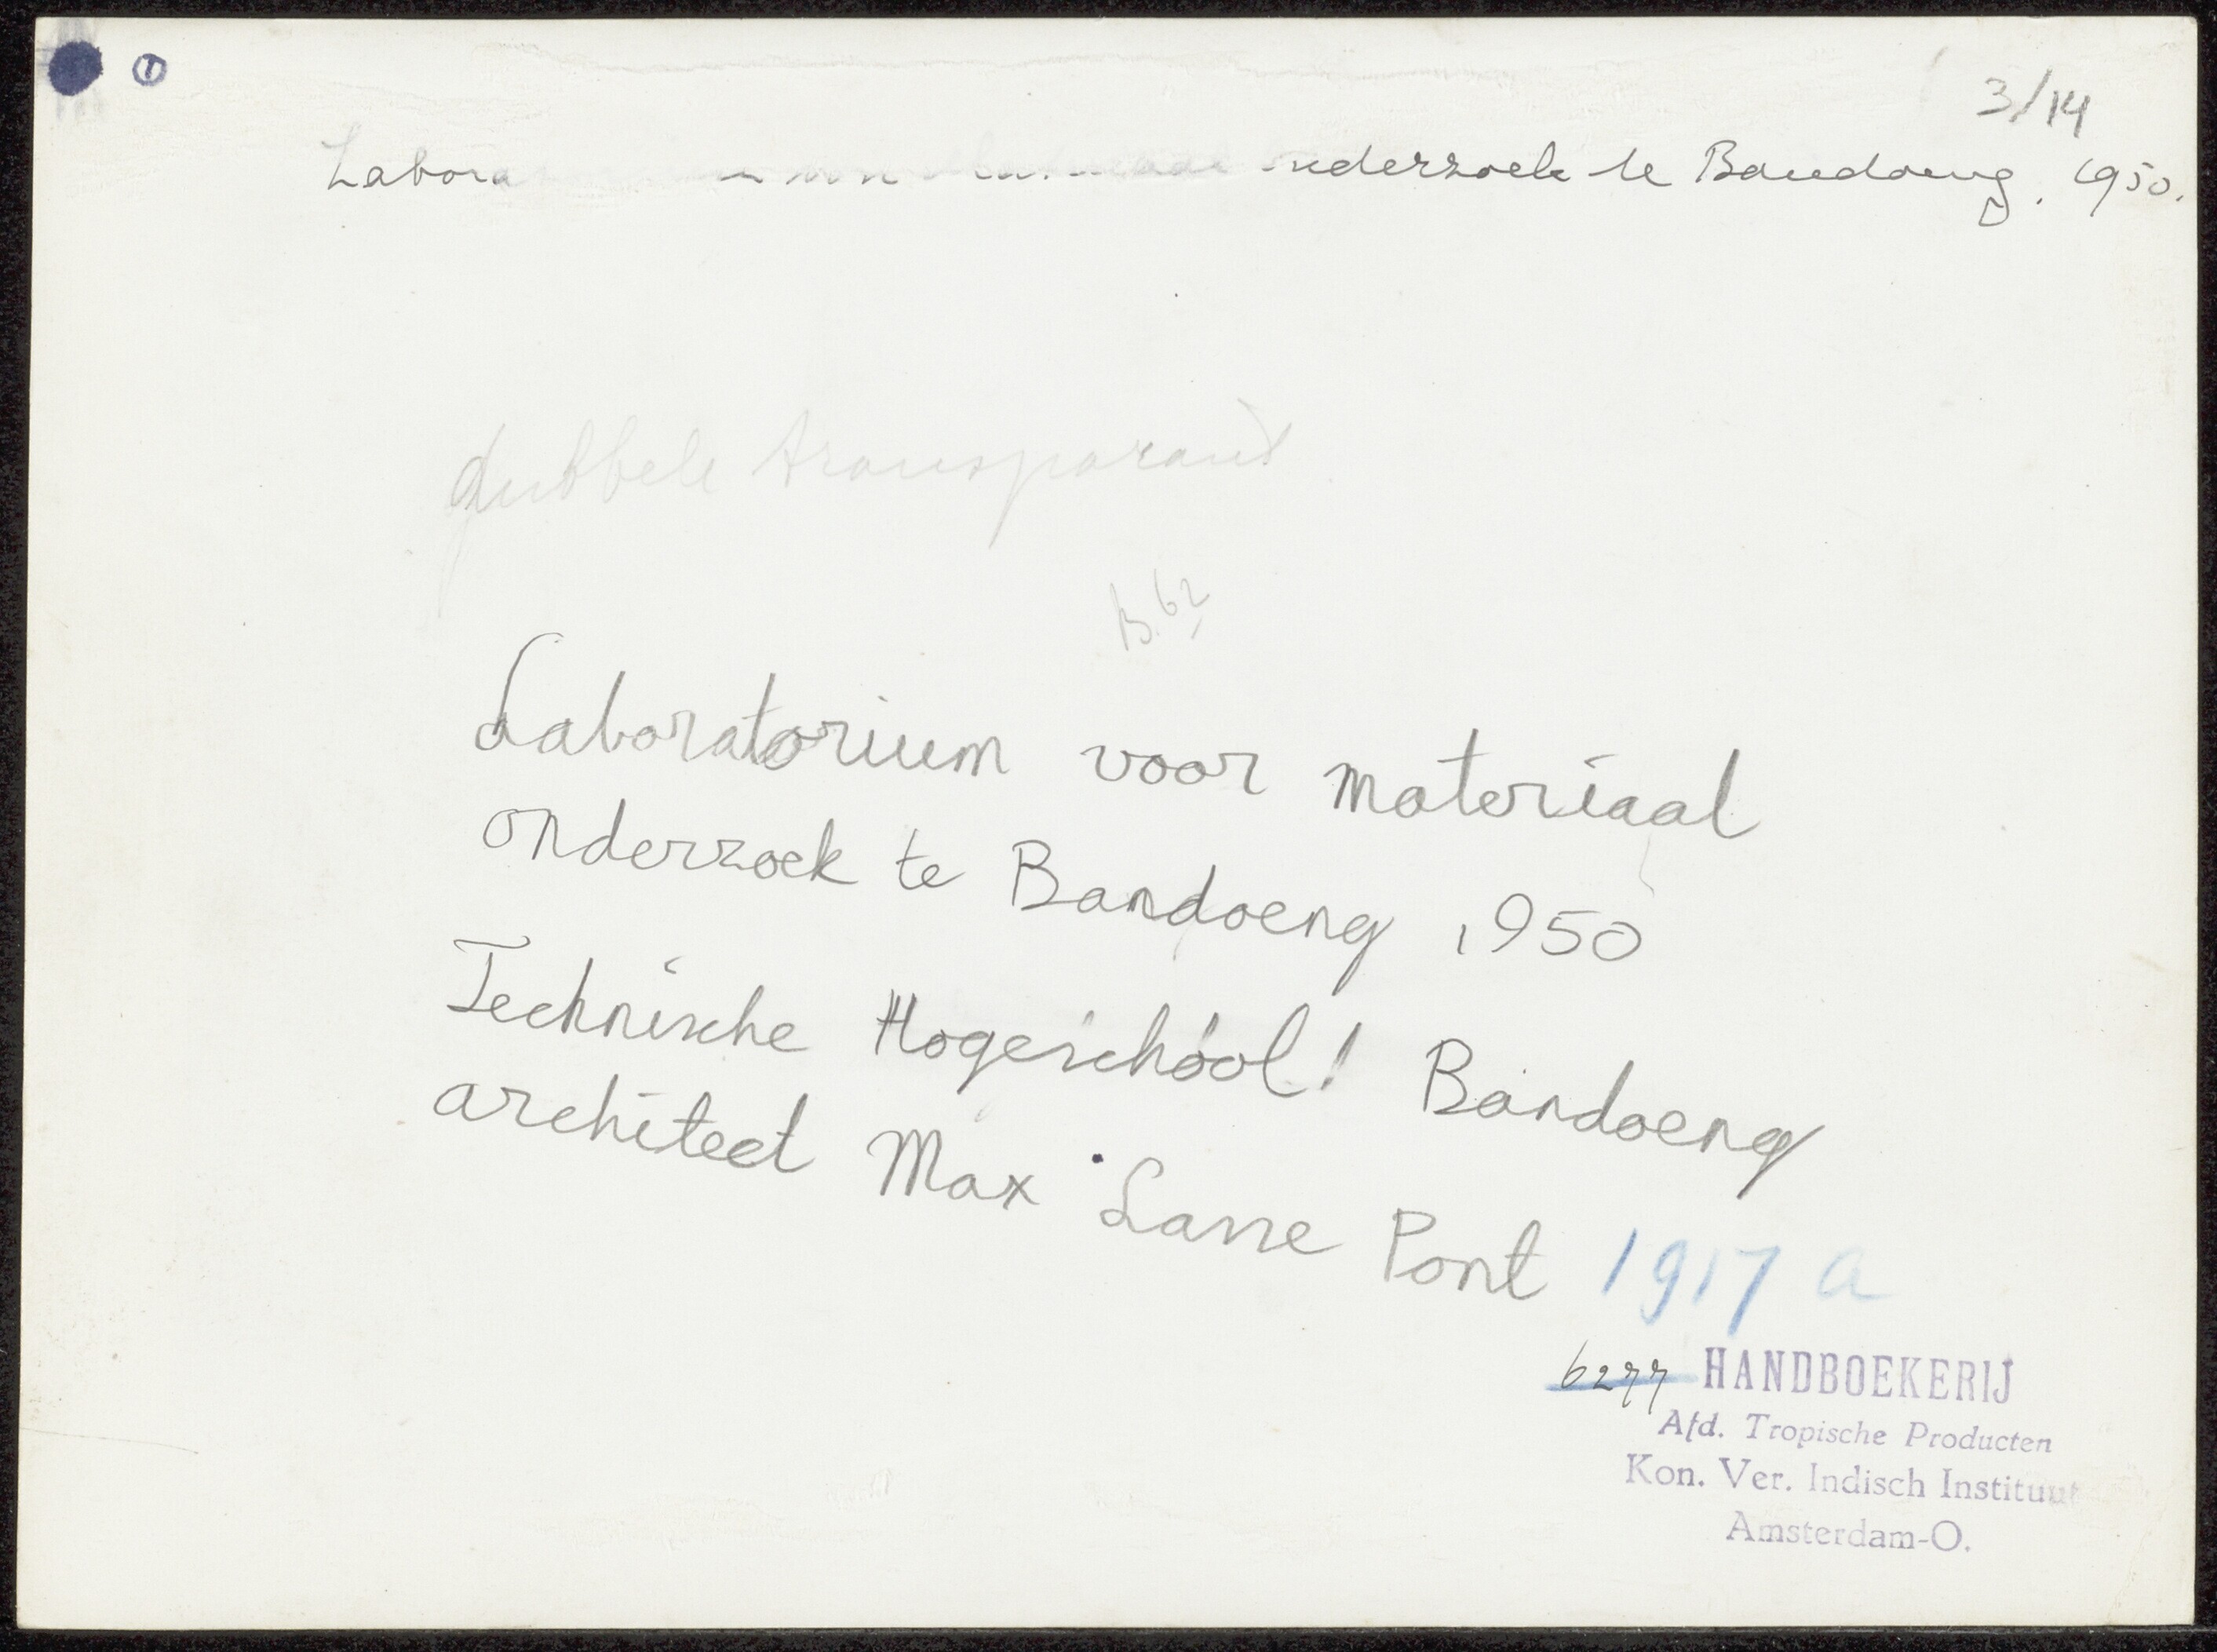 3/14
Labora onderzoek te Bandoeng. 1950.
dubbele transparant
B.62
Laboratorium voor materiaal
onderzoek te Bandoeng 1950
Technische Hogeschool! Bandoeng
architect Max Lasse Pont 1917 a
6277 HANDBOEKERIJ
Afd. Tropische Producten
Kon. Ver. Indisch Instituut
Amsterdam-O.